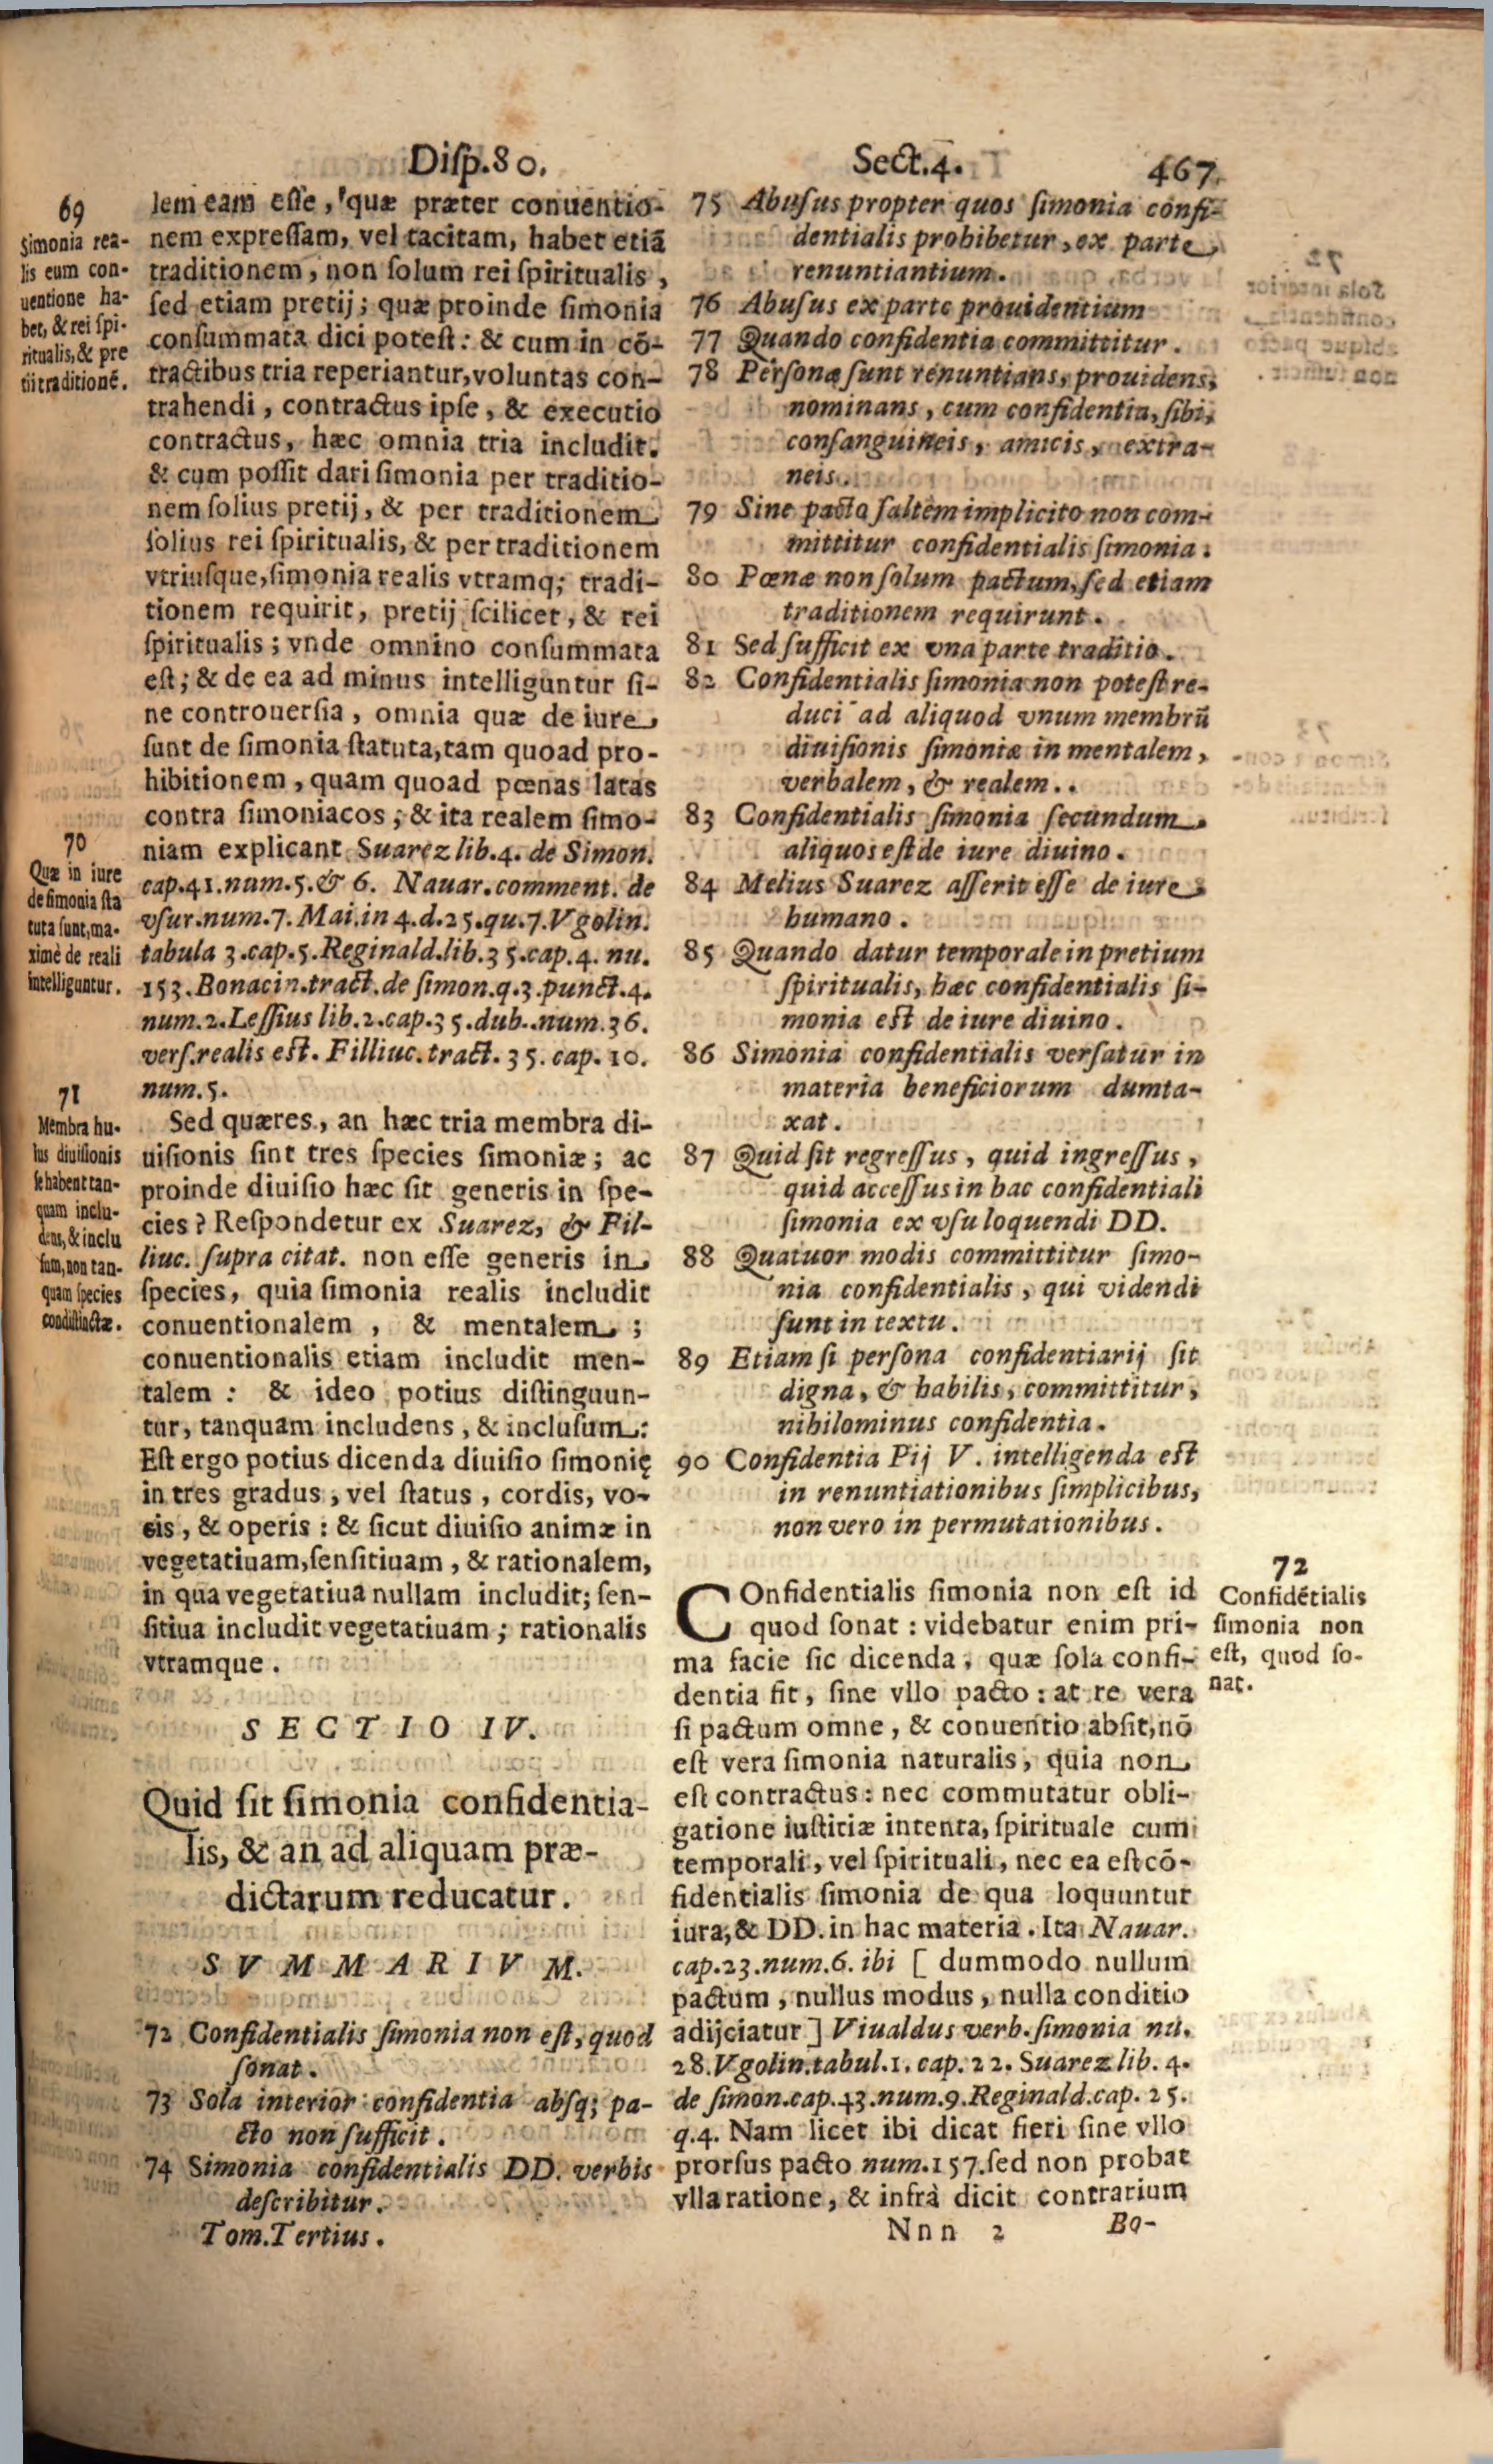 Disp.80. Sect.4. 467
69
Simonia rea-
lis eum con-
uentione ha-
bet, & rei spi-
ritualis, & pre
tii traditionē.
lem eam esse, quæ præter conuentio-
nem expressam, vel tacitam, habet etiā
traditionem, non solum rei spiritualis,
sed etiam pretij; quæ proinde simonia
consummata dici potest: & cum in cō-
tractibus tria reperiantur, voluntas con-
trahendi, contractus ipse, & executio
contractus, hæc omnia tria includit.
& cum possit dari simonia per traditio-
nem solius pretij, & per traditionem
solius rei spiritualis, & per traditionem
vtriusque, simonia realis vtramq; tradi-
tionem requirit, pretij scilicet, & rei
spiritualis; vnde omnino consummata
est; & de ea ad minus intelliguntur si-
ne controuersia, omnia quæ de iure
sunt de simonia statuta, tam quoad pro-
hibitionem, quam quoad pœnas latas
contra simoniacos; & ita realem simo-
70
Quæ in iure
de simonia sta
tuta sunt, ma-
ximè de reali
intelliguntur.
niam explicant Suarez lib.4. de Simon.
cap.41.num.5.& 6. Nauar.comment. de
vsur.num.7. Mai.in 4.d.25.qu.7.Vgolin.
tabula 3.cap.5.Reginald.lib.35.cap.4. nu.
153.Bonacin.tract.de simon.q.3.punct.4.
num.2.Lessius lib.2.cap.35.dub..num.36.
vers.realis est. Filliuc.tract.35. cap. 10.
num.5.
71
Membra hu-
ius diuisionis
se habent tan-
quam inclu-
dens, & inclu
sum, non tan-
quam species
condistinctæ.
Sed quæres, an hæc tria membra di-
uisionis sint tres species simoniæ; ac
proinde diuisio hæc sit generis in spe-
cies? Respondetur ex Suarez, & Fil-
liuc. supra citat. non esse generis in
species, quia simonia realis includit
conuentionalem, & mentalem;
conuentionalis etiam includit men-
talem: & ideo potius distinguun-
tur, tanquam includens, & inclusum:
Est ergo potius dicenda diuisio simonię
in tres gradus, vel status, cordis, vo-
cis, & operis: & sicut diuisio animæ in
vegetatiuam, sensitiuam, & rationalem,
in qua vegetatiua nullam includit; sen-
sitiua includit vegetatiuam; rationalis
vtramque.
SECTIO IV.
Quid sit simonia confidentia-
lis, & an ad aliquam præ-
dictarum reducatur.
SVMMARIVM.
72 Confidentialis simonia non est, quod
sonat.
73 Sola interior confidentia absq; pa-
cto non sufficit.
74 Simonia confidentialis DD. verbis
describitur.
Tom.Tertius.
75 Abusus propter quos simonia confi-
dentialis prohibetur, ex parte
renuntiantium.
76 Abusus ex parte prouidentium
77 Quando confidentia committitur.
78 Personæ sunt renuntians, prouidens,
nominans, cum confidentia, sibi,
consanguineis, amicis, extra-
neis.
79 Sine pacto saltem implicito non com-
mittitur confidentialis simonia.
80 Pœnæ non solum pactum, sed etiam
traditionem requirunt.
81 Sed sufficit ex vna parte traditio.
82 Confidentialis simonia non potest re-
duci ad aliquod vnum membrū
diuisionis simoniæ in mentalem,
verbalem, & realem..
83 Confidentialis simonia secundum
aliquos est de iure diuino.
84 Melius Suarez asserit esse de iure
humano.
85 Quando datur temporale in pretium
spiritualis, hæc confidentialis si-
monia est de iure diuino.
86 Simonia confidentialis versatur in
materia beneficiorum dumta-
xat.
87 Quid sit regressus, quid ingressus,
quid accessus in hac confidentiali
simonia ex vsu loquendi DD.
88 Quatuor modis committitur simo-
nia confidentialis, qui videndi
sunt in textu.
89 Etiam si persona confidentiarij sit
digna, & habilis, committitur,
nihilominus confidentia.
90 Confidentia Pij V. intelligenda est
in renuntiationibus simplicibus,
non vero in permutationibus.
72
Confidētialis
simonia non
est, quod so-
nat.
COnfidentialis simonia non est id
quod sonat: videbatur enim pri-
ma facie sic dicenda, quæ sola confi-
dentia fit, sine vllo pacto: at re vera
si pactum omne, & conuentio absit, nō
est vera simonia naturalis, quia non
est contractus: nec commutatur obli-
gatione iustitiæ intenta, spirituale cum
temporali, vel spirituali, nec ea est cō-
fidentialis simonia de qua loquuntur
iura, & DD. in hac materia. Ita Nauar.
cap.23.num.6. ibi [ dummodo nullum
pactum, nullus modus, nulla conditio
adijciatur ] Viualdus verb. simonia nu.
28.Vgolin.tabul.1. cap.22. Suarez lib. 4.
de simon.cap.43.num.9.Reginald.cap. 25.
q.4. Nam licet ibi dicat fieri sine vllo
prorsus pacto num.157.sed non probat
vlla ratione, & infrà dicit contrarium
Nnn 2 Bo-